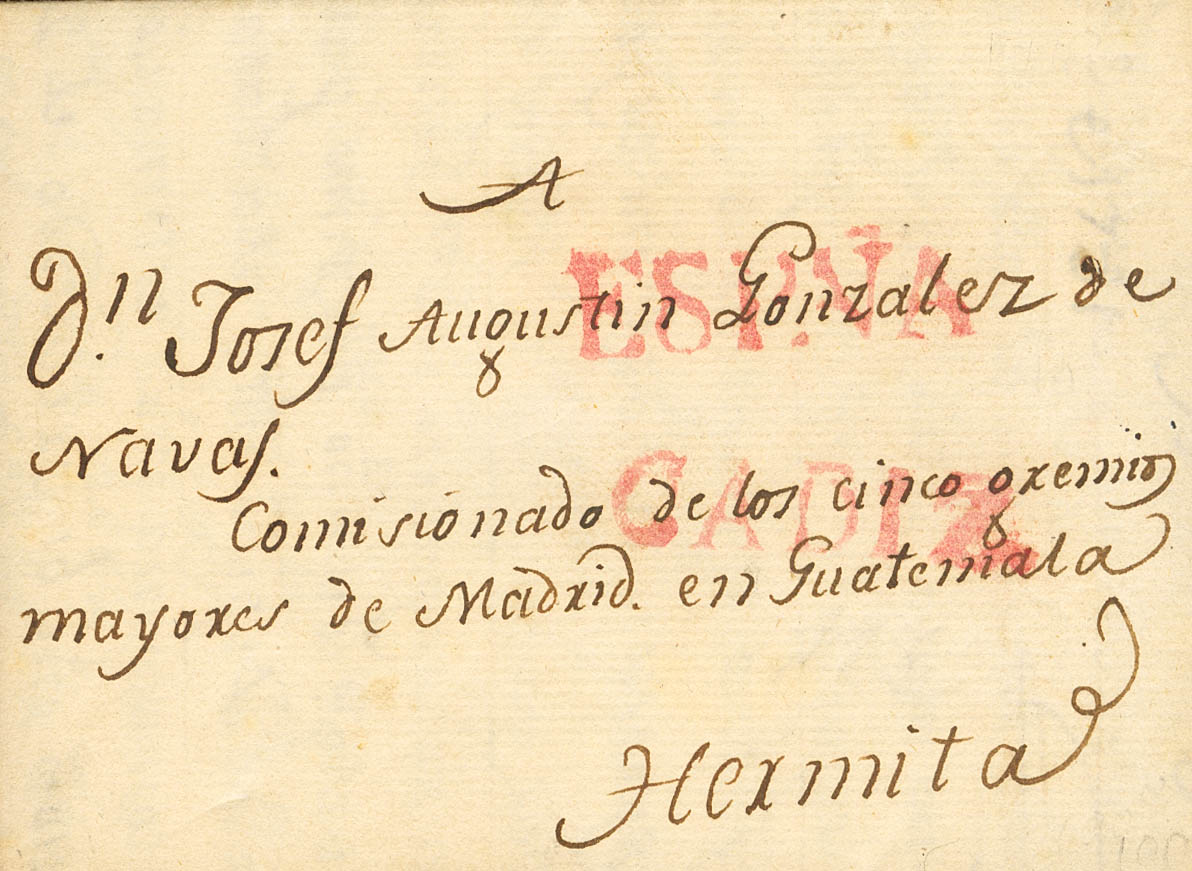 A
Dn. Josef Augustin Gonzalez de
Navas.
Comisionado de los cinco gremios
mayores de Madrid. en Guatemala
Hermita
ESPÑA
CADIZ